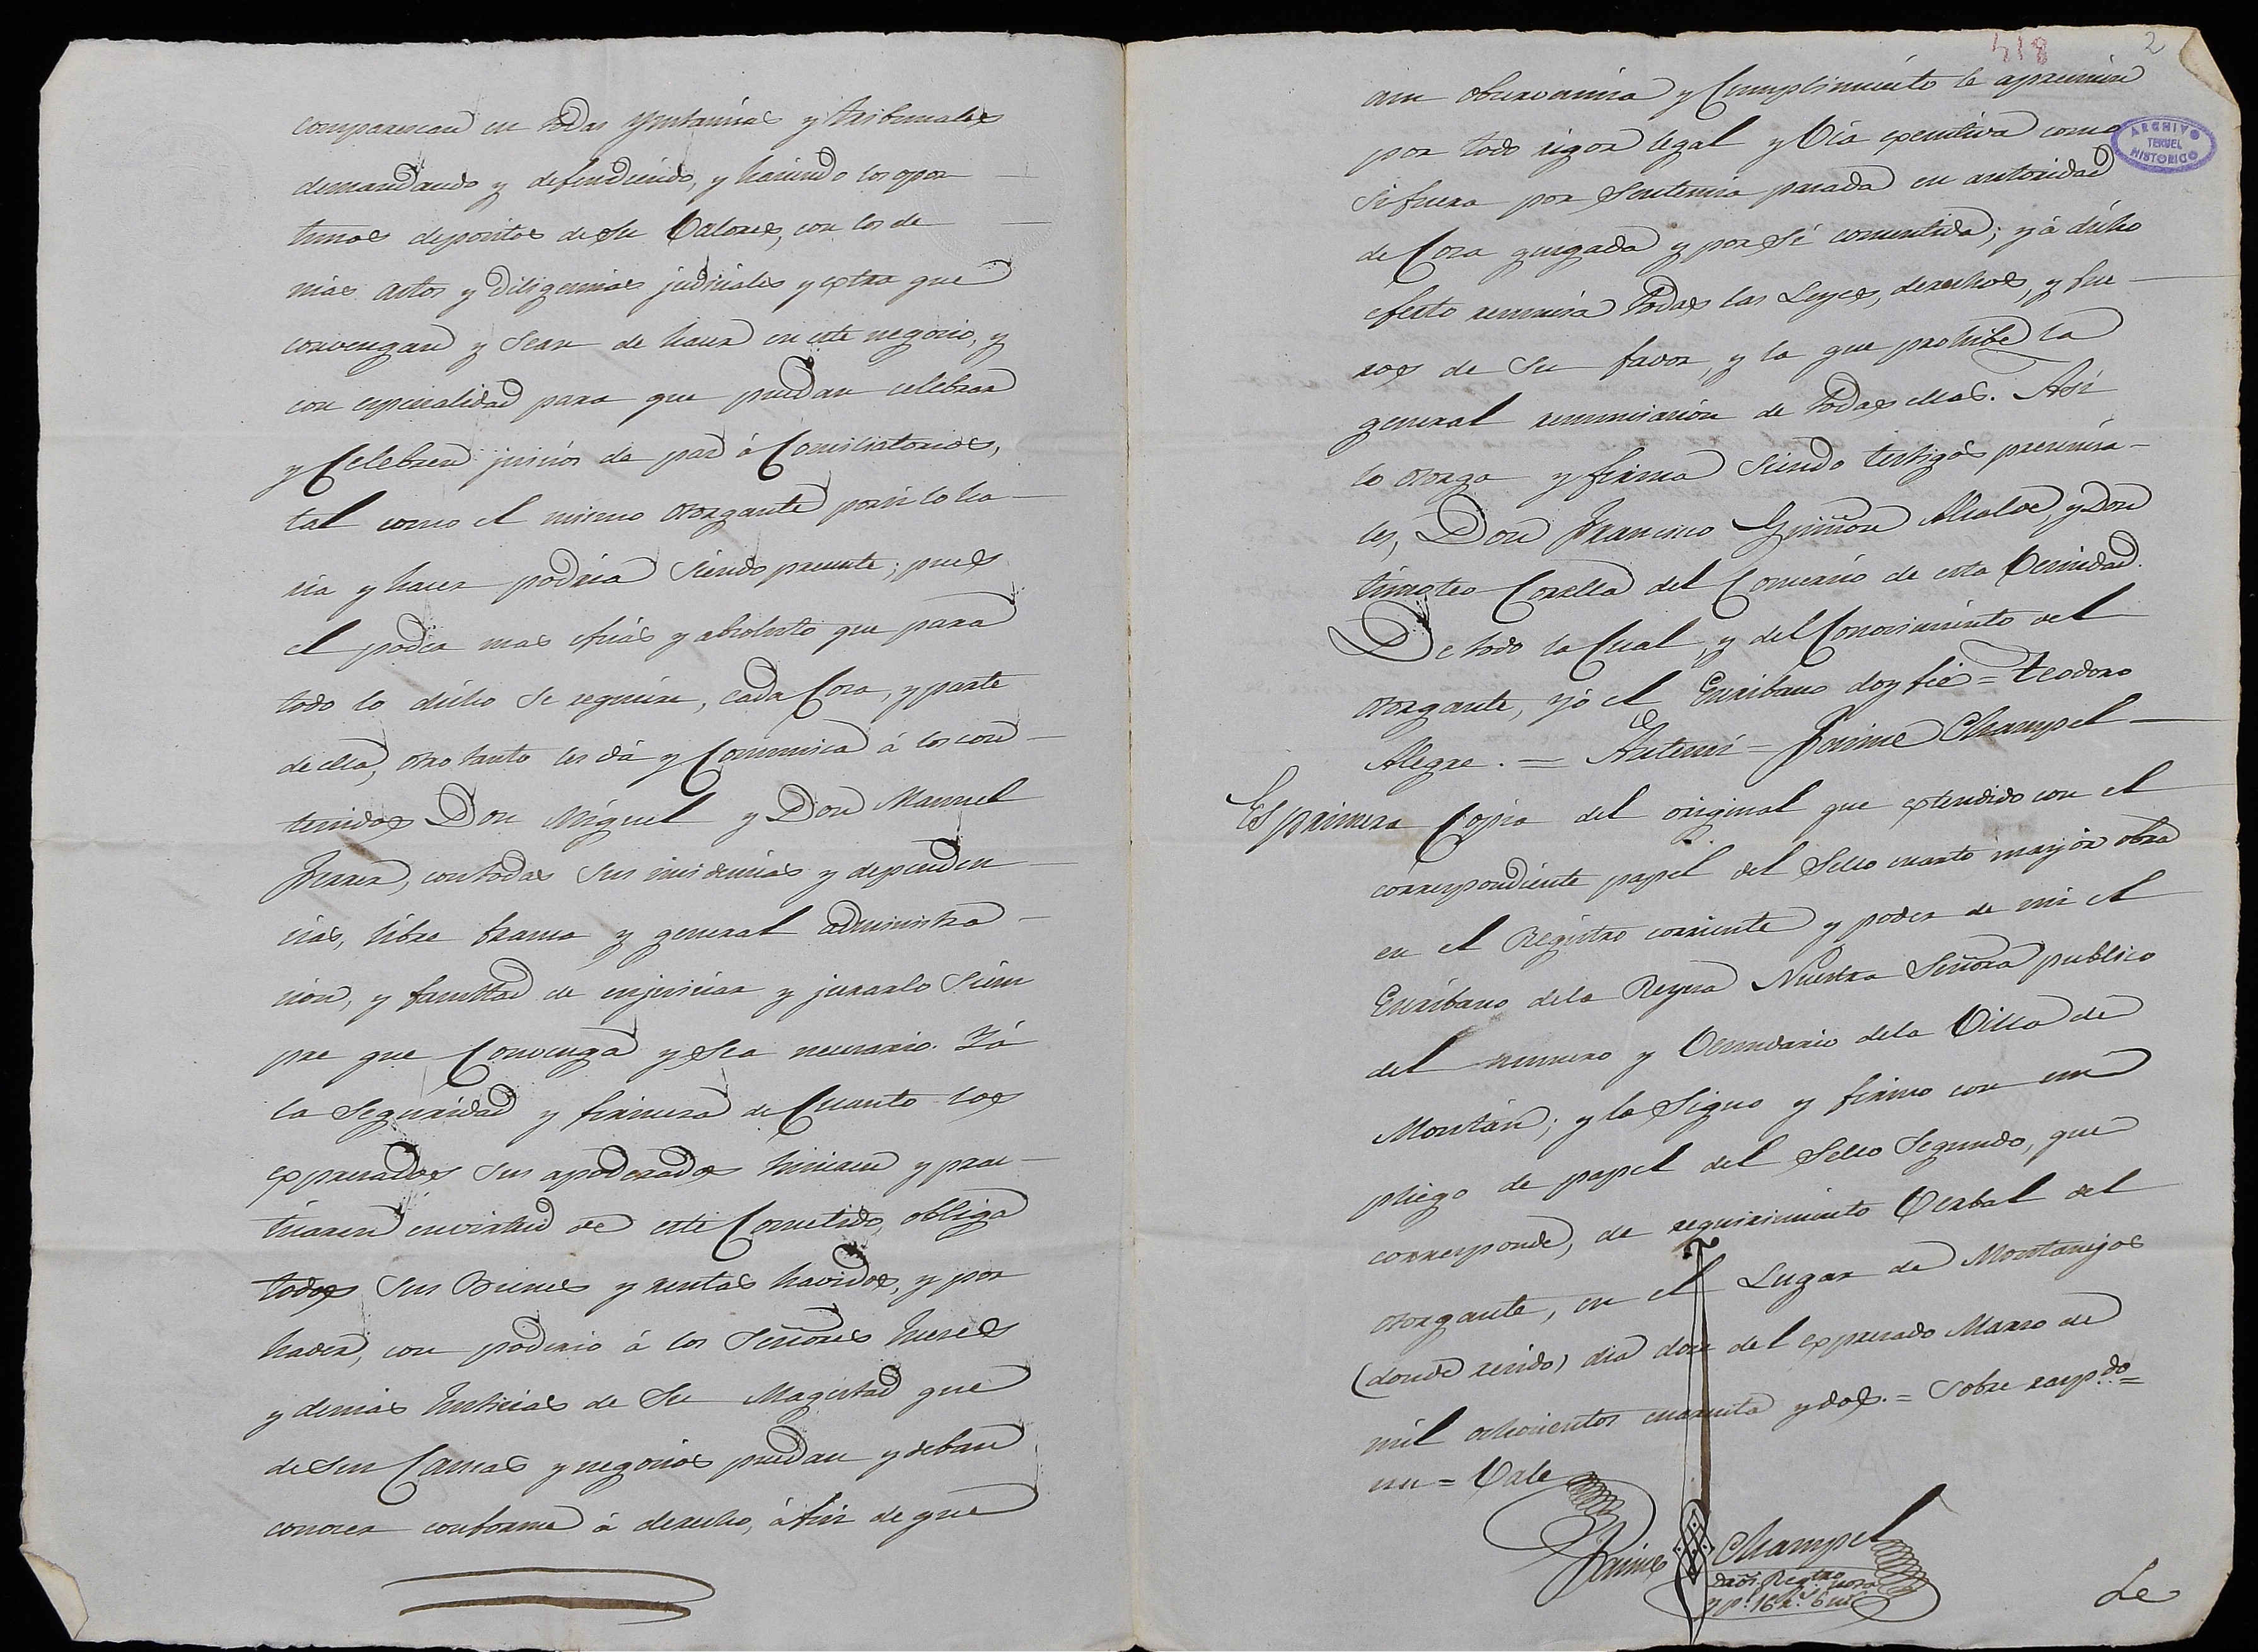 comparescan en todas Ynstancias y tribunales
demandando y defendiendo, y haciendo los opor
tunos depositos de su Valores, con los de
mas actos y diligencias judiciales y extra que
convengan y sean de hacer en este negocio, y
con especialidad para que puedan celebrar
y Celebren juicios de paz ó Conciliatorios,
tal como el mismo otorgante por si lo ha-
ria y hacer podria siendo presente; pues
el poder mas eficás y absoluto que para
todo lo dicho se requiere, cada Cosa, y parte
de ella, otro tanto les dá y Comunica á los con-
tenidos Don Miguel y Don Manuel
Ferrer, con todas sus insidencias y dependen-
cias, libre franca y general administra-
cion, y facultad de enjuiciar y jurarlo siem
pre que Convenga y sea necesario. Yá
la seguridad y firmeza de Cuanto los
expresados sus apoderados hicieren y prac-
ticaren en virtud de este Cometido, obliga
todos sus Bienes y rentas havidos, y por
haver, con poderio á los Señores Jueces
y demas Justicias de Su Magestad que
de sus Causas y negocios puedan y deban
conocer conforme á derecho, á fin de que
418 2
ARCHIVO
TERUEL
HISTORICO
asu observancia y Cumplimiento le apremien
por todo rigor legal y Via executiva como
si fuera por Sentencia pasada en autoridad
de Cosa jusgada y por sí consentida; y á dicho
efecto renuncia todas las Leyes, derechos, y fue-
ros de su favor, y la que prohibe la
general renunciacion de todas ellas. Asi
lo otorga y firma siendo testigos presencia-
les, Don Francisco Guiñon Alcalde, y Don
timoteo Corella del Comercio de esta Vecindad.
De todo lo Cual, y del Conocimiento del
otorgante, yó el Escribano doy fé = Teodoro
Alegre. = Antemi = Jaime Champel
Es primera Copia del original que extendido con el
correspondiente papel del Sello cuarto mayór obra
en el Registro corriente y poder de mi el
Escribano dela Reyna Nuestra Señora publico
del numero y Vecindario dela Villa de
Montán; y la Signo y firmo con un
pliego de papel del Sello Segundo, que
corresponde, de requirimiento Verbal del
otorgante, en el Lugar de Montanejos
(donde recido) dia doze del expresado Marzo de
mil ochocientos cuarenta y dos. = Sobre rasp.do =
un = Vale
Jaime Champel
dros. Regtro
y p.l 16 r.s 6 ms
Le